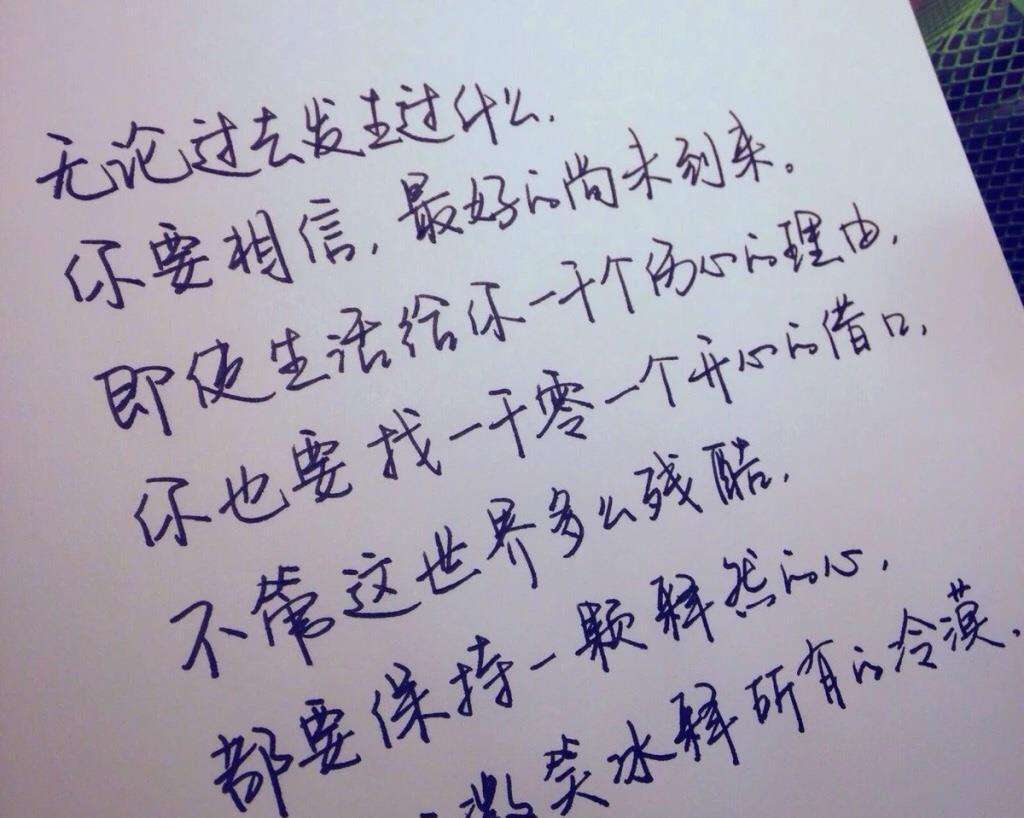 无论过去发生过什么.
你要相信,最好的尚未到来。
即使生活给你一千个伤心的理由,
你也要找一千零一个开心的借口,
不管这世界多么残酷.
都要保持一颗释然的心,
微笑冰释所有的冷漠.